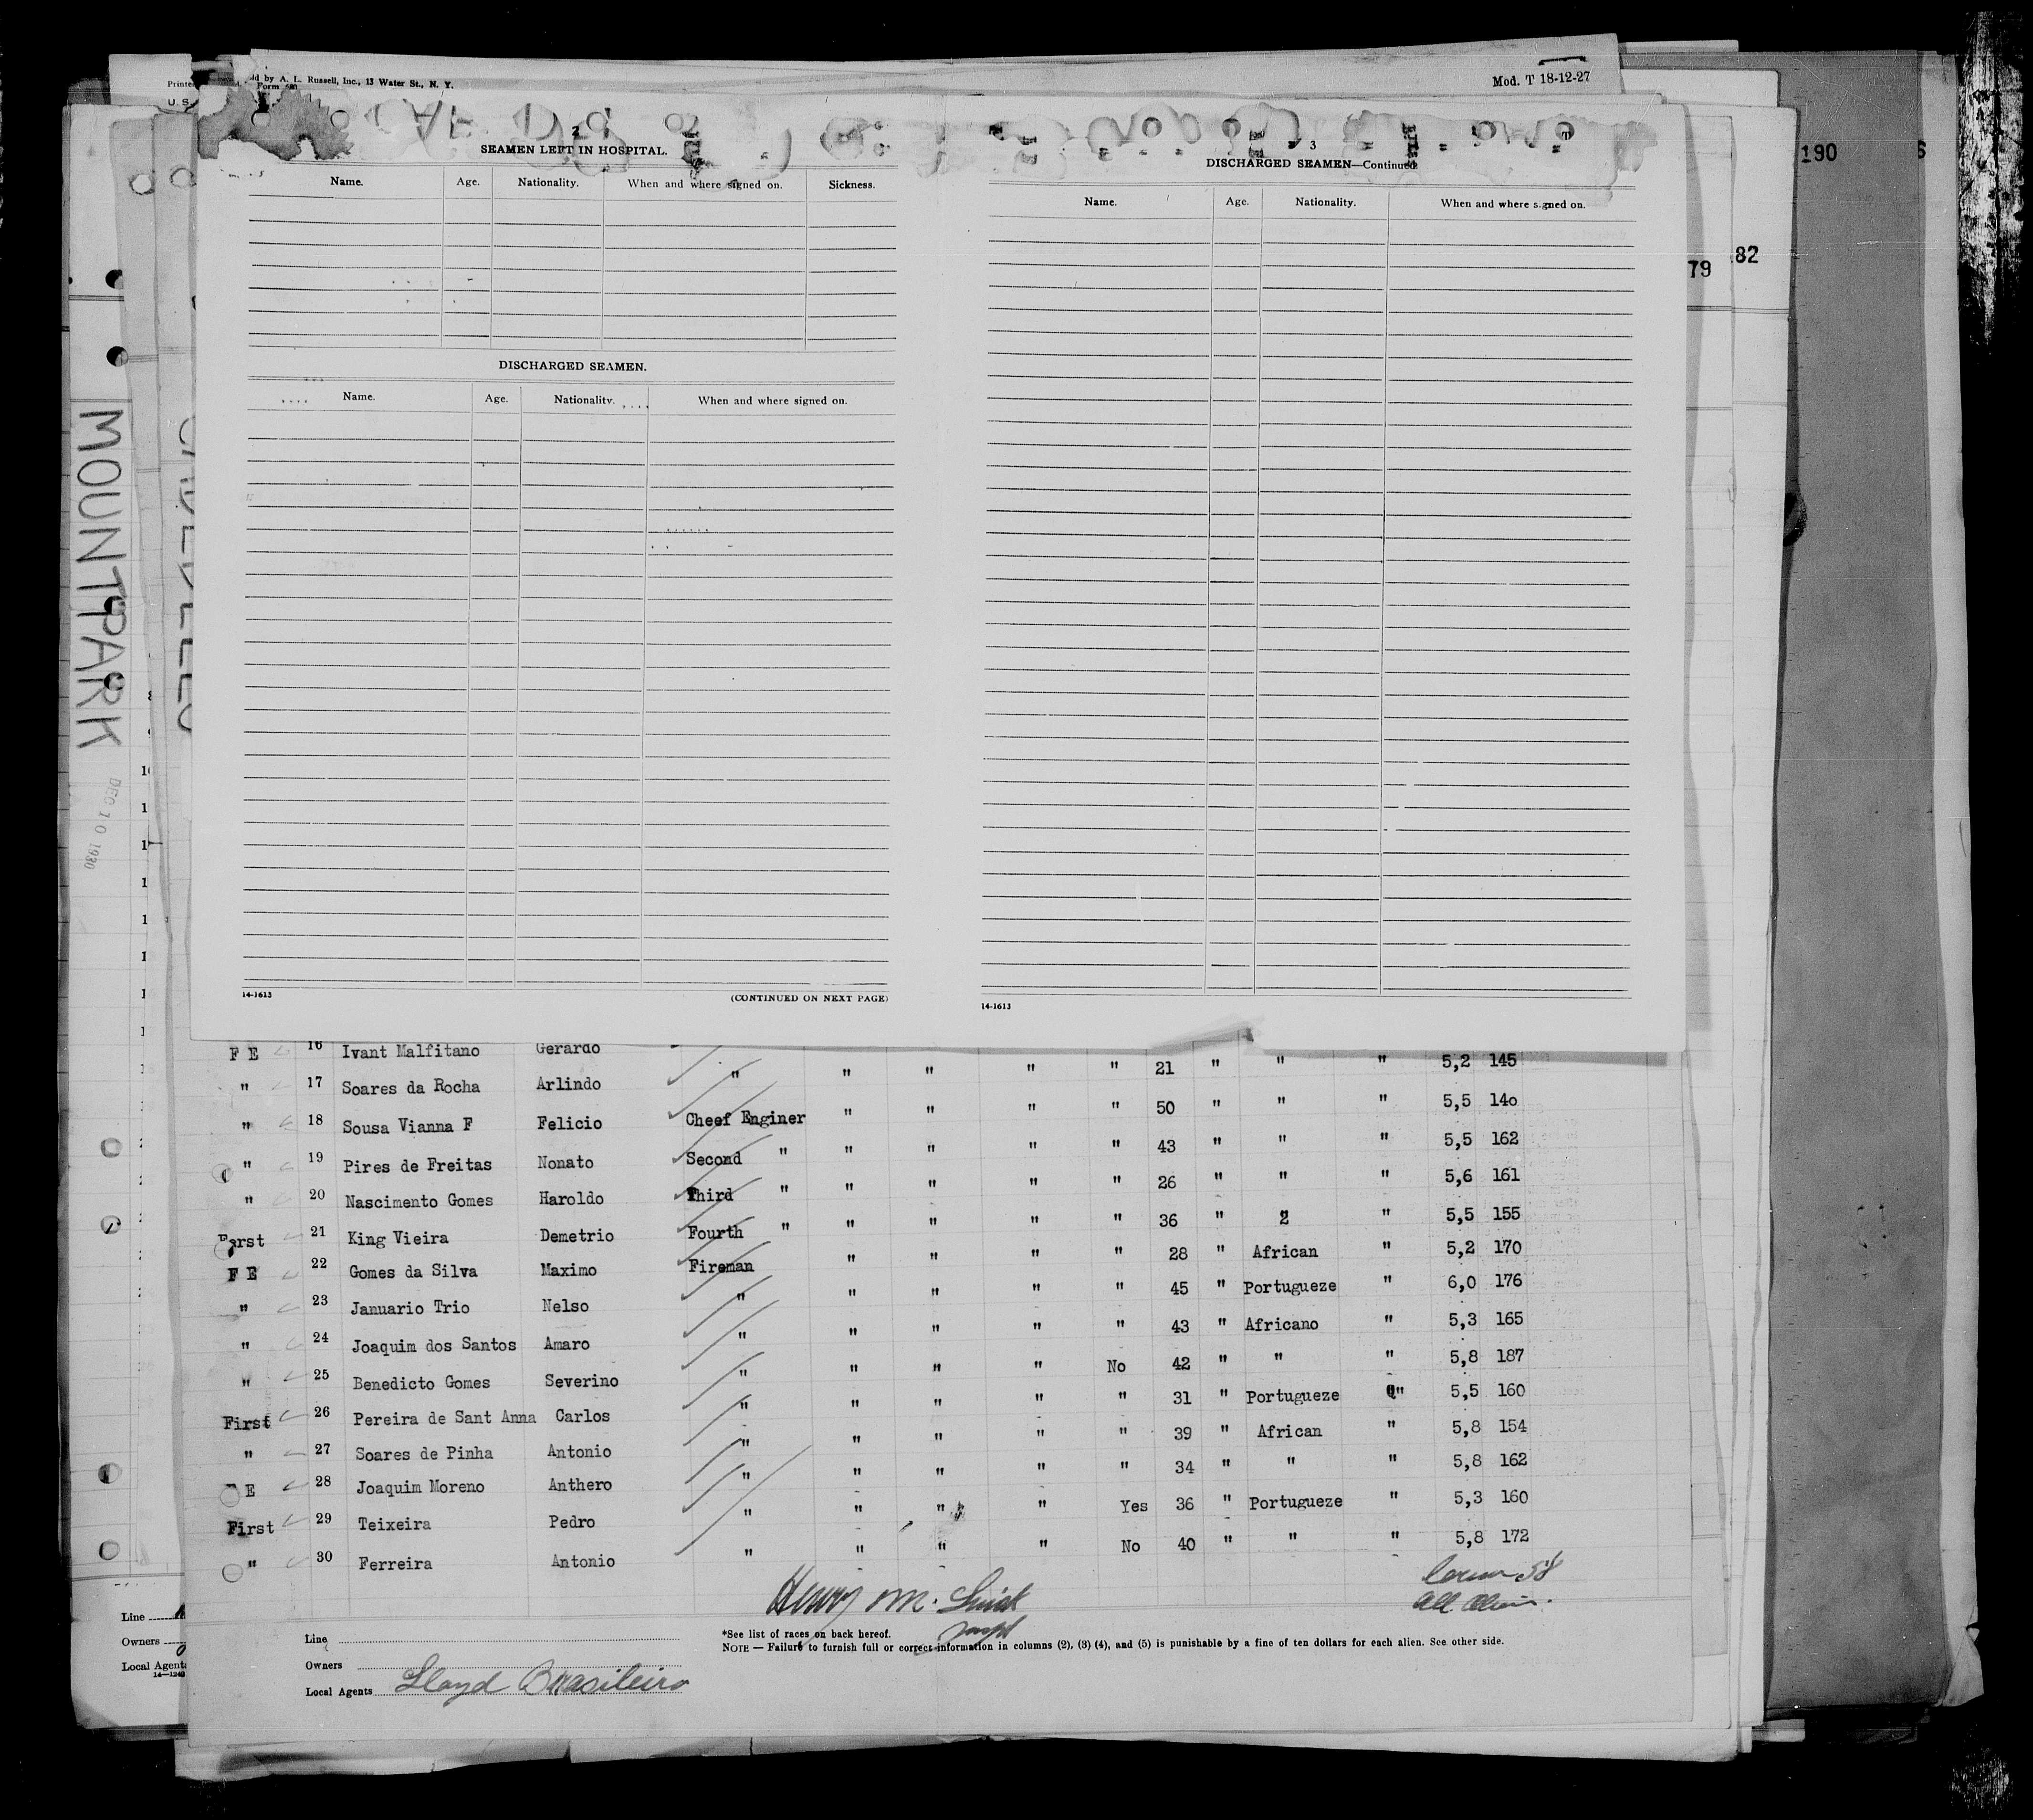 ld by A. L. Russell, Inc., 13 Water St., N. Y.
Mod. T 18-12-27
190
82
79
2
SEAMEN LEFT IN HOSPITAL.
Name. Age. Nationality. When and where signed on. Sickness.
DISCHARGED SEAMEN.
Name. Age. Nationality. When and where signed on.
14-1613 (CONTINUED ON NEXT PAGE)
3
DISCHARGED SEAMEN—Continued
Name. Age. Nationality. When and where signed on.
14-1613
MOUNTPARK
DEC 10 1930
F E 16 Ivant Malfitano Gerardo " " " " " 21 " " " 5,2 145
" 17 Soares da Rocha Arlindo " " " " " 50 " " " 5,5 14o
" 18 Sousa Vianna F Felicio Cheef Enginer " " " " 43 " " " 5,5 162
" 19 Pires de Freitas Nonato Second " " " " " 26 " " " 5,6 161
" 20 Nascimento Gomes Haroldo Third " " " " " 36 " 2 " 5,5 155
21 King Vieira Demetrio Fourth " " " " " 28 " African " 5,2 170
F E 22 Gomes da Silva Maximo Fireman " " " " 45 " Portugueze " 6,0 176
" 23 Januario Trio Nelso " " " " " 43 " Africano " 5,3 165
" 24 Joaquim dos Santos Amaro " " " " No 42 " " " 5,8 187
" 25 Benedicto Gomes Severino " " " " " 31 " Portugueze " 5,5 160
First 26 Pereira de Sant Anna Carlos " " " " " 39 " African " 5,8 154
" 27 Soares de Pinha Antonio " " " " " 34 " " " 5,8 162
E 28 Joaquim Moreno Anthero " " " " Yes 36 " Portugueze " 5,3 160
First 29 Teixeira Pedro " " " " No 40 " " " 5,8 172
" 30 Ferreira Antonio " " " "
Henry M.
All
*See list of races on back hereof.
NOTE — Failure to furnish full or correct information in columns (2), (3) (4), and (5) is punishable by a fine of ten dollars for each alien. See other side.
Line
Owners
Local Agents Lloyd Brasileiro
Line
Owners
Local Agents